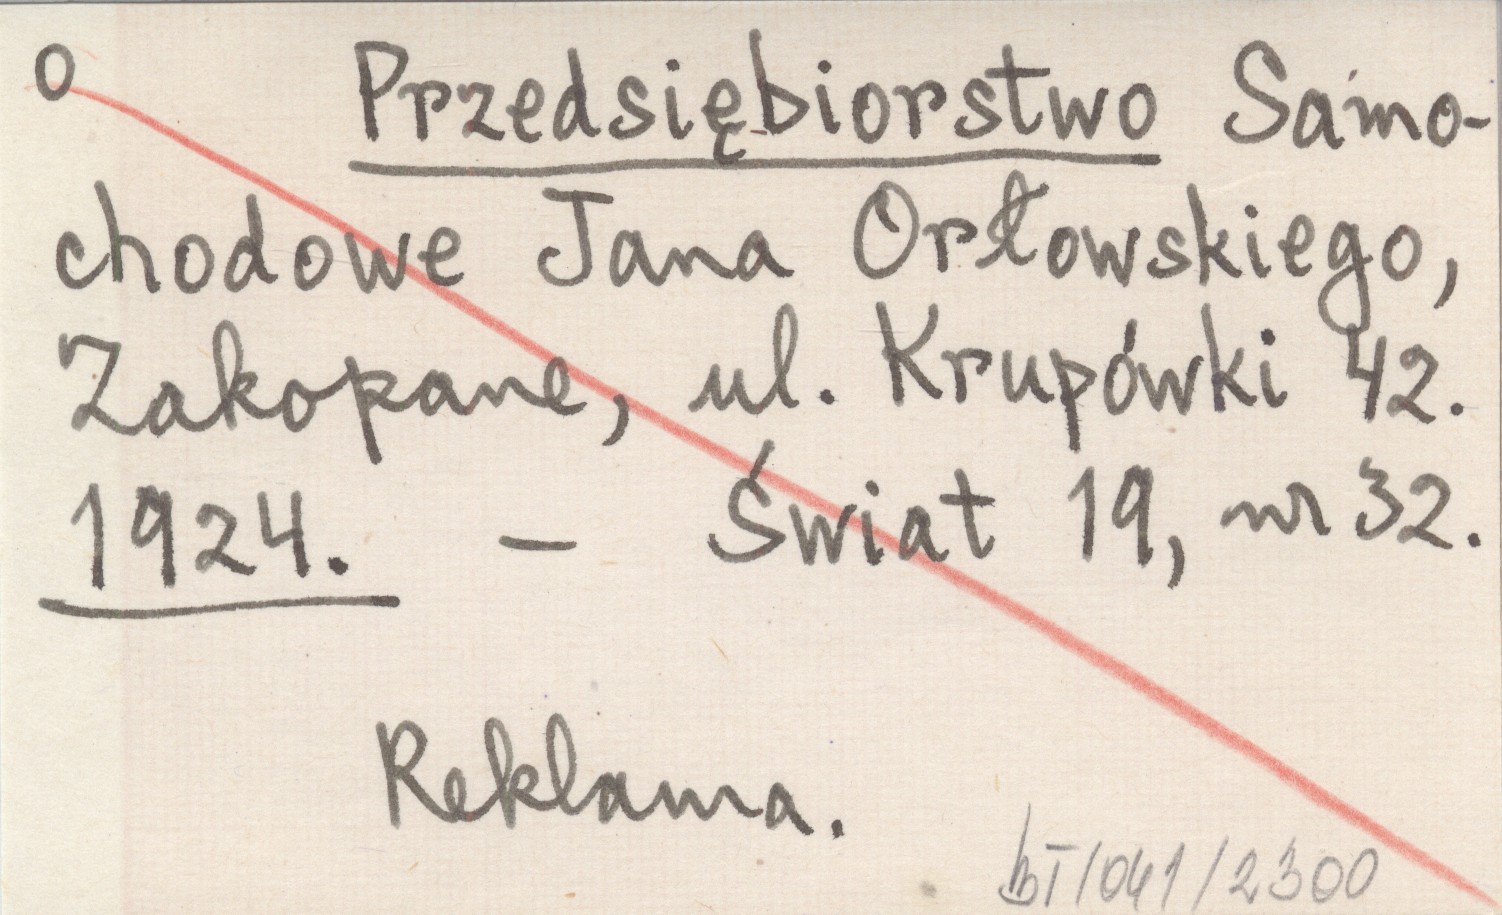 o Przedsiębiorstwo Samo-
chodowe Jana Orłowskiego,
Zakopane, ul. Krupówki 42.
1924. – Świat 19, nr 32.
Reklama.
bT/041/2300